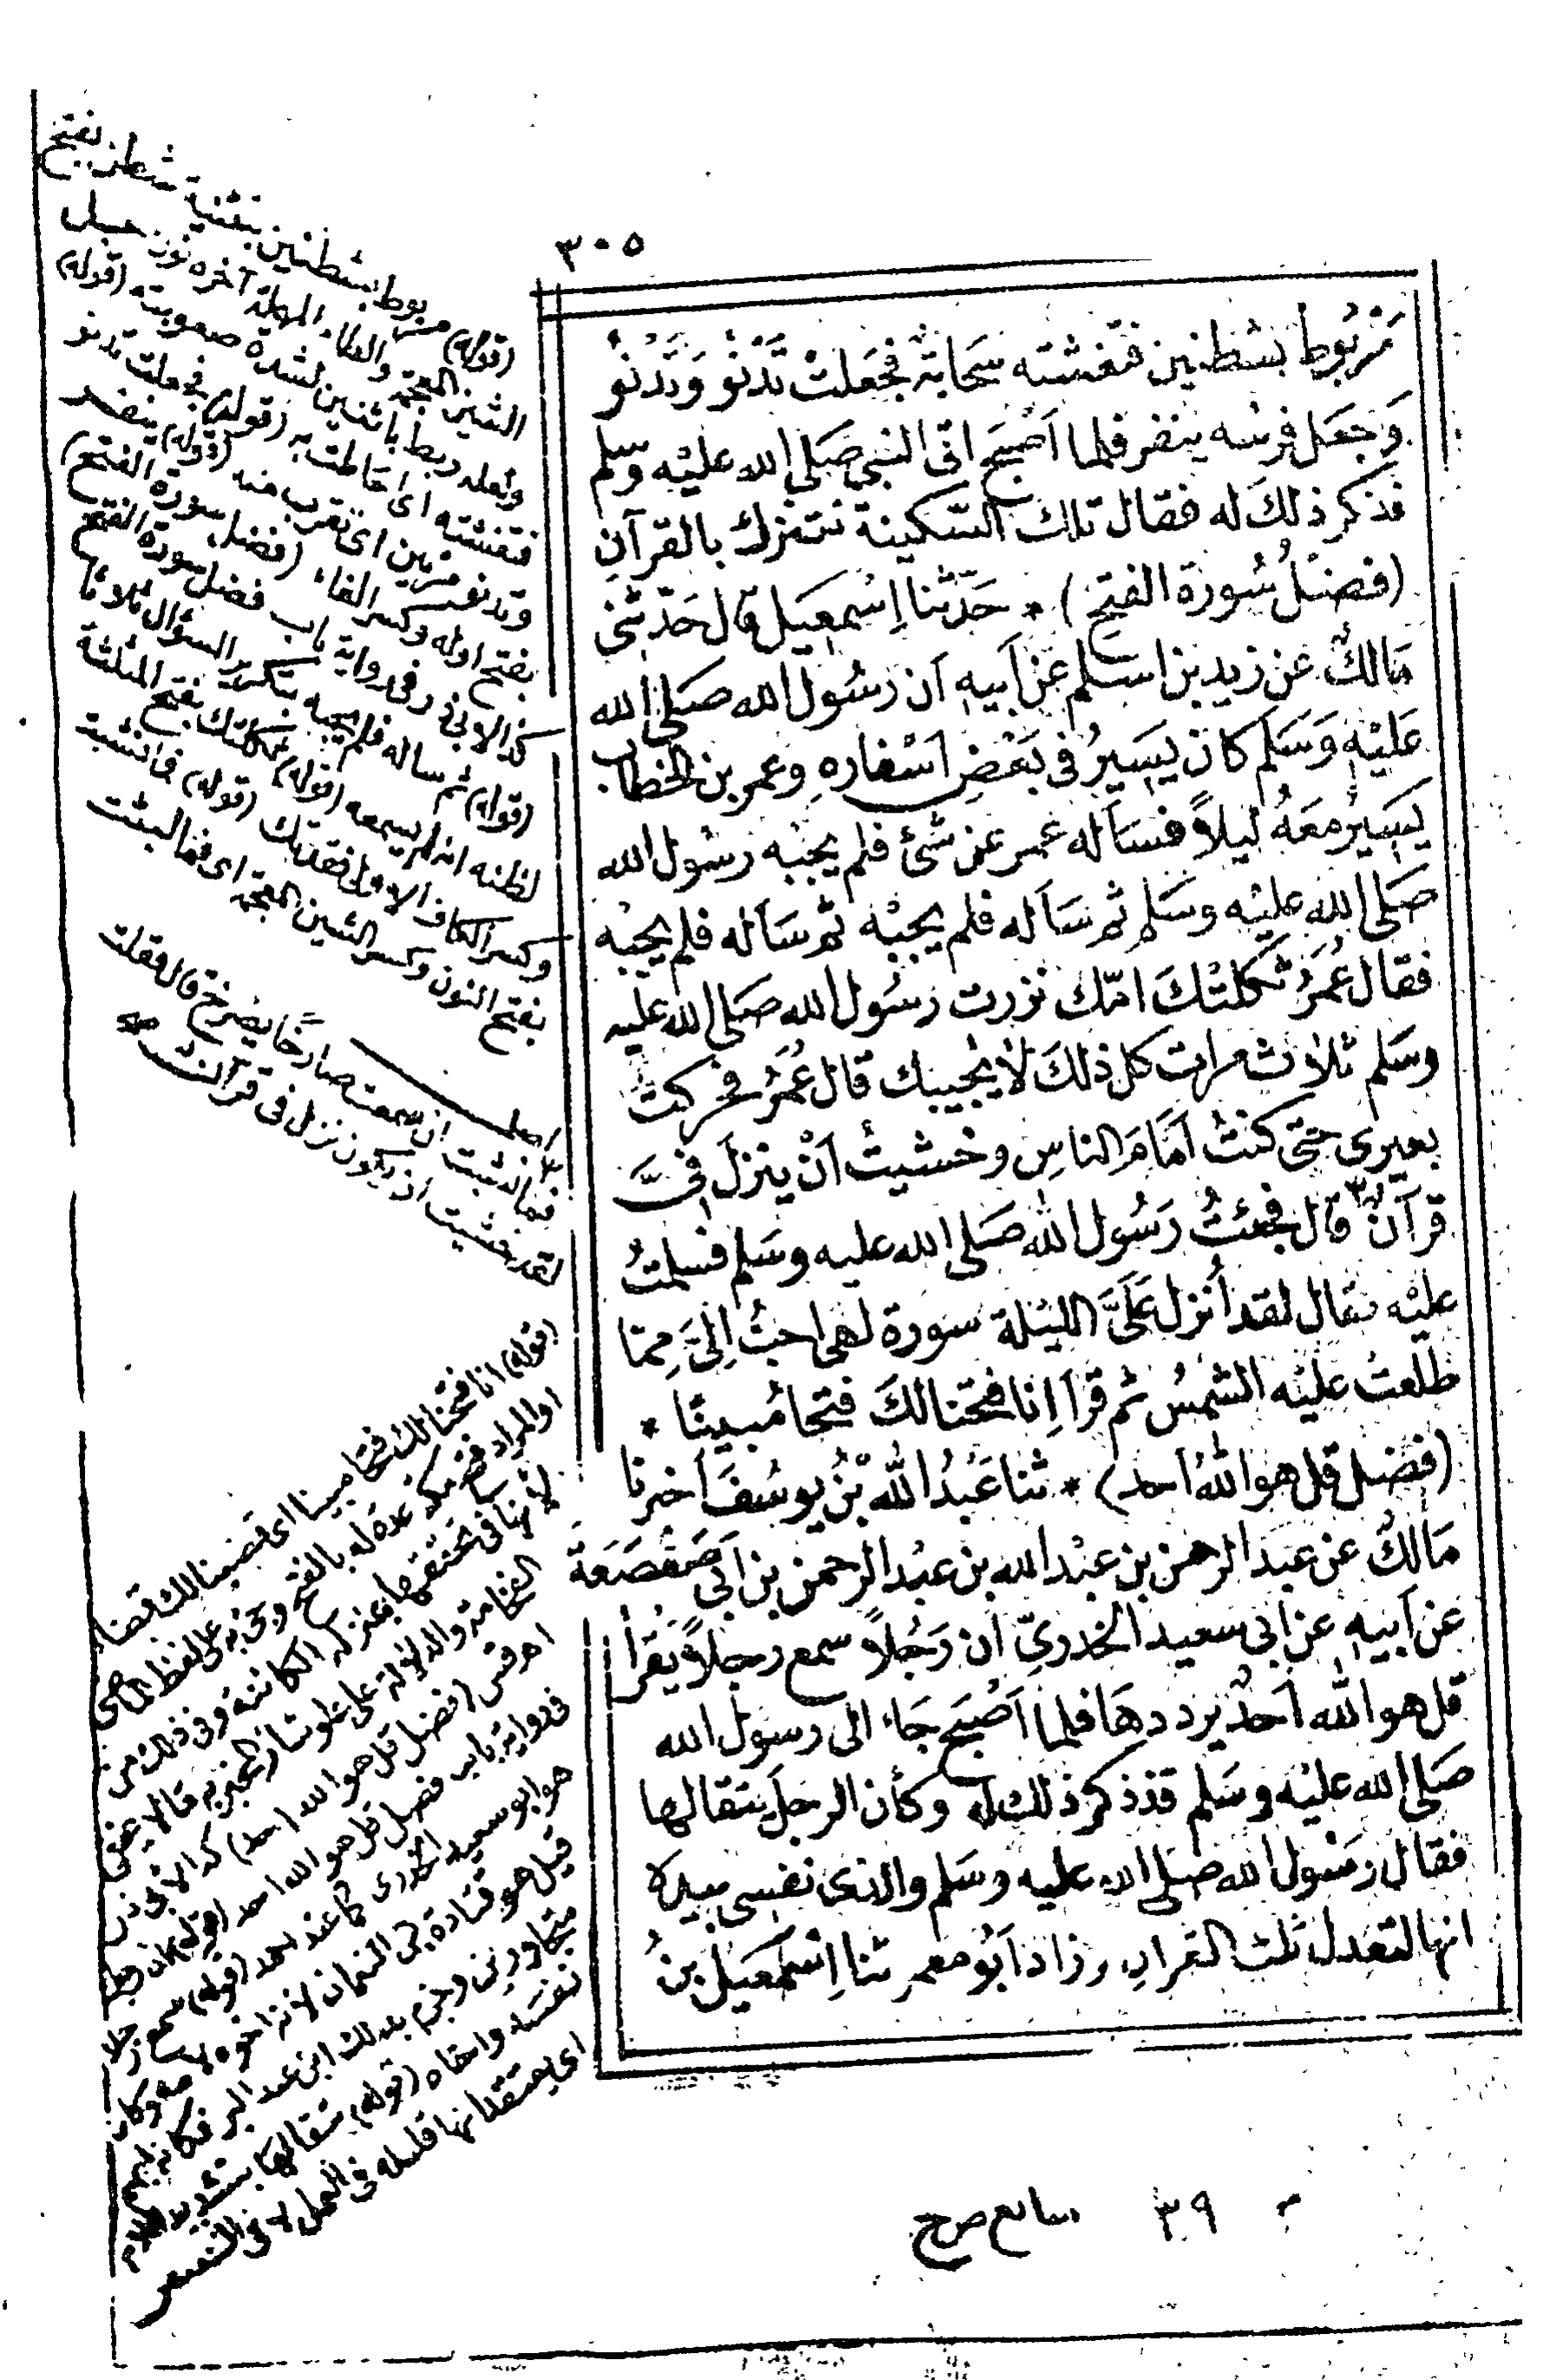 ٣٠٥
مَرْبُوطٌ بشطنين فتغشته سَحَابَة فجَعَلتْ تَدْنُو وَتَدْنُو
وَجَعَل فرسُه ينفر فلما اَصْبَح اتى النبى صَلى الله عليْه وسلم
فذكر ذلكَ له فقال تلكَ السّكينة تتنزلت بالقرآن
(فضْلُ سُورة الفتح) * حَدّثنا اِسْمعِيَل قال حَدّثنى
مَالكٌ عن زيد بن اسلم عَن اَبيهِ اَن رسُول الله صَلى الله
عَليْهِ وَسَلم كان يَسِيرُ فى بَعْضِ اَسْفارِهِ وعمر بن الخطاب
يَسيرُ مَعَهُ ليلاً فسَاَله عمر عن شئ فلم يجبْه رسُول الله
صَلى الله عليْه وسَلم ثم سَاَله فلم يجبْه ثم سَاَله فلم يجبْه
فقال عُمَرُ ثكلتْكَ امّك نزرت رسُول الله صَلى الله عليه
وسَلم ثلاث مرات كل ذلكَ لَا يُجيبك قال عُمَرُ فحركتُ
بعيرى حتى كنتُ اَمَامَ الناسِ وخشيتُ اَنْ ينزلَ فىَّ
قرآنٌ قال فجئتُ رَسُول الله صَلى الله عليه وسَلم فسلمتُ
عليْه فقال لقد اُنزل عَلَىَّ الليْلة سورة لهى احبُّ اِلىَّ مِمّا
طلعتْ عليْه الشمسُ ثم قراَ اِنا فتحنا لكَ فتحا مُبينًا *
(فضل قل هو اللهُ احد) * ثنا عَبْدُ الله بْنُ يوسُفَ اَخبرنا
مَالكٌ عن عبد الرحمن بن عبْد الله بن عبْد الرحمن بن ابى صَعْصَعَة
عن اَبيهِ عن ابى سعيد الخدرىّ ان رَجُلاً سمع رجلاً يَقرأ
قل هو الله اَحدٌ يرددهَا فلما اَصْبَح جَاء الى رسول الله
صَلى الله عليْه وسَلم فذكر ذلك له وكأن الرجلَ يتقالها
فقال رسُول الله صلى الله عليه وسَلم والذى نفسى بيده
انها لتعدل ثلث القرآن وزاد اَبُو معمر ثنا اِسْمَعيل بنُ
(قوله) مربوط بشطنين تثنية شطن بفتح
الشين المعجمة والطاء المهملة آخره نون حبل
ولعله ربط باثنين لشدة صعوبته (قوله)
فتغشته اى احاطت به (قوله) فجعلت تدنو
وتدنو مرتين اى تقرب منه (قوله) ينفر
بفتح اوله وكسر الفاء (فضل سورة الفتح)
كذا لابى ذر وفى رواية باب فضل سورة الفتح
(قوله) ثم ساله فلم يجبه بتكرير السؤال ثلاثا
لظنه انه لم يسمعه (قوله) ثكلتك بفتح المثلثة
وكسر الكاف الاولى فقدتك (قوله) فما نشبت
بفتح النون وكسر الشين المعجمة اى فما لبثت
اصل
فما نشبت ان سمعت صارخًا يصرخ قال فقلت
لقد خشيت ان يكون نزل فى قرآن
(قوله) انا فتحنا لك فتحا مبينا اى قضينا لك قضاء
او المراد فتح مكة عدة له بالفتح وجئ به على لفظ الماضى
لانها فى تحققها بمنزلة الكائنة وفى ذلك من
الفخامة والدلالة على علو شان المخبر به ما لا يخفى
اهـ قس (فضل قل هو الله احد) كذا لابى ذر
فى رواية باب فضل قل هو الله احد (قوله) ان رجلا
هو ابو سعيد الخدرى كما عند احمد (قوله) سمع رجلا
قيل هو قتادة بن النعمان لانه اخوه لامه وكانا
متجاورين وجزم بذلك ابن عبد البر فكانه ابهم
نفسه واخاه (قوله) يتقالها بتشديد اللام
اى يعتقد انها قليلة فى العمل لا فى التنقيص
٣٩ سابع ص ح